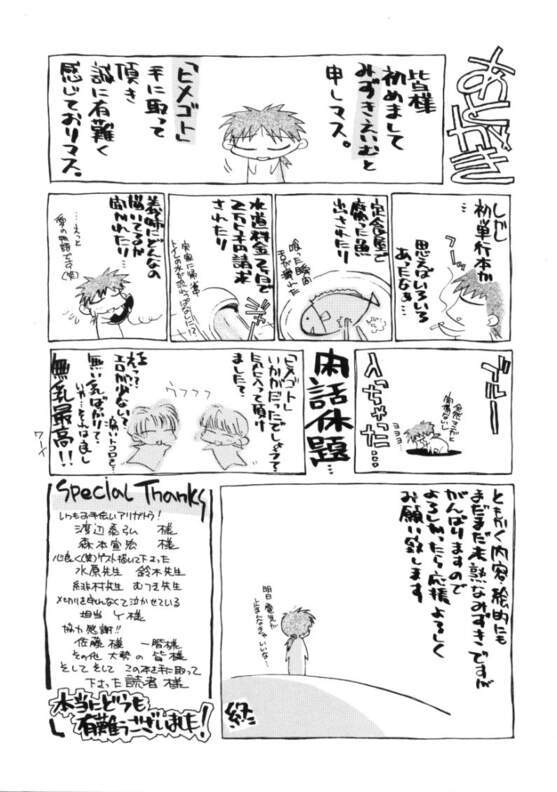 あとがき
皆様
初めまして
みずきえいむと
申しマス。
「ヒメゴト」
手に取って
頂き
誠に有難く
感じておりマス。
しかし
初単行本か
思えばいろいろ
あったなぁ…
定食屋で
腐った魚
出されたり
喰った瞬間
舌が痺れた
水道料金そばで
2万5千円請求
されたり
義姉にどんなの
描いてるか
聞かれたり
…えっと
ブルー
入っちゃった…
ヨヨヨ
閑話休題…
「ヒメゴト」
いかがだったでしょう?
たのしんで頂け
ました?
ウフフフ
えっ?
エロが少ない
無い乳ばかりで
無乳最高!!
ワーイ
ともかく内容・絵的にも
まだまだ未熟なみずきですが
がんばりますので
よろしかったら応援よろしく
お願い致します
明日
続
Special Thanks
いつもお手伝いアリガトう!
渡辺泰弘 様
森本宣宏 様
心良く(笑)ゲスト描いて下さった
水原先生 鈴木先生
緋村先生 むつき先生
〆切りを守んなくて泣かせている
担当Y様
協力感謝!!
佐藤様 一階様
その他 大勢の皆様
そしてそして この本を手に取って
下さった読者様
本当にどうも
有難うございました!